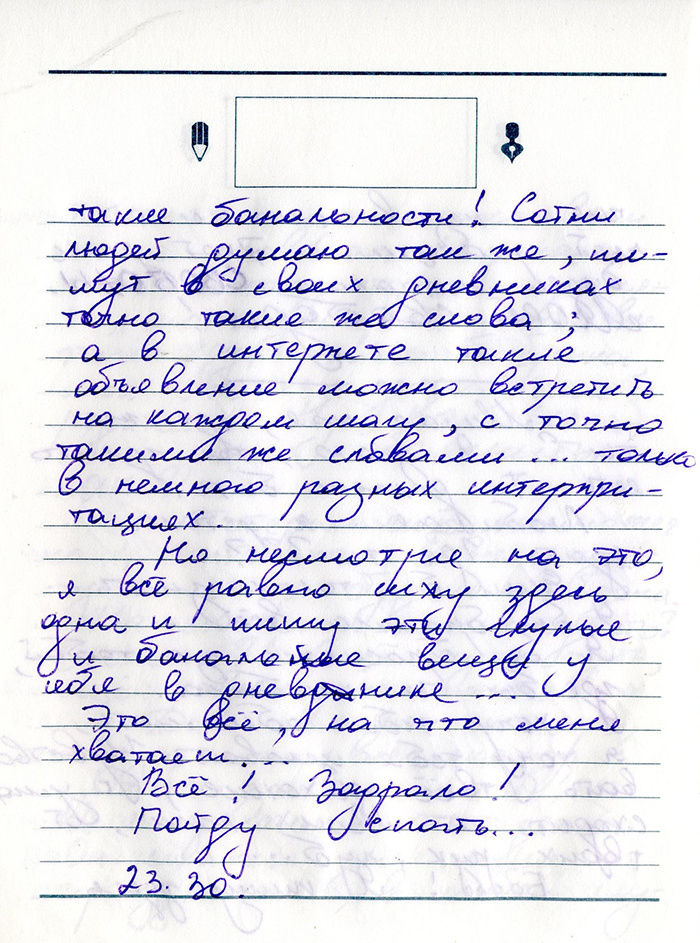 такие банальности! Сотни
людей думаю так же, пи-
шут в своих дневниках
точно такие же слова;
а в интернете такие
объявление можно встретить
на каждом шагу, с точно
такими же словами... только
в немного разных интерпри-
тациях.
Но несмотрие на это,
я всё равно сижу здесь
одна и пишу эти глупые
и банальные вещи у
себя в дневнике...
Это всё, на что меня
хватает...
Всё! Задрало!
Пойду спать...
23.30.